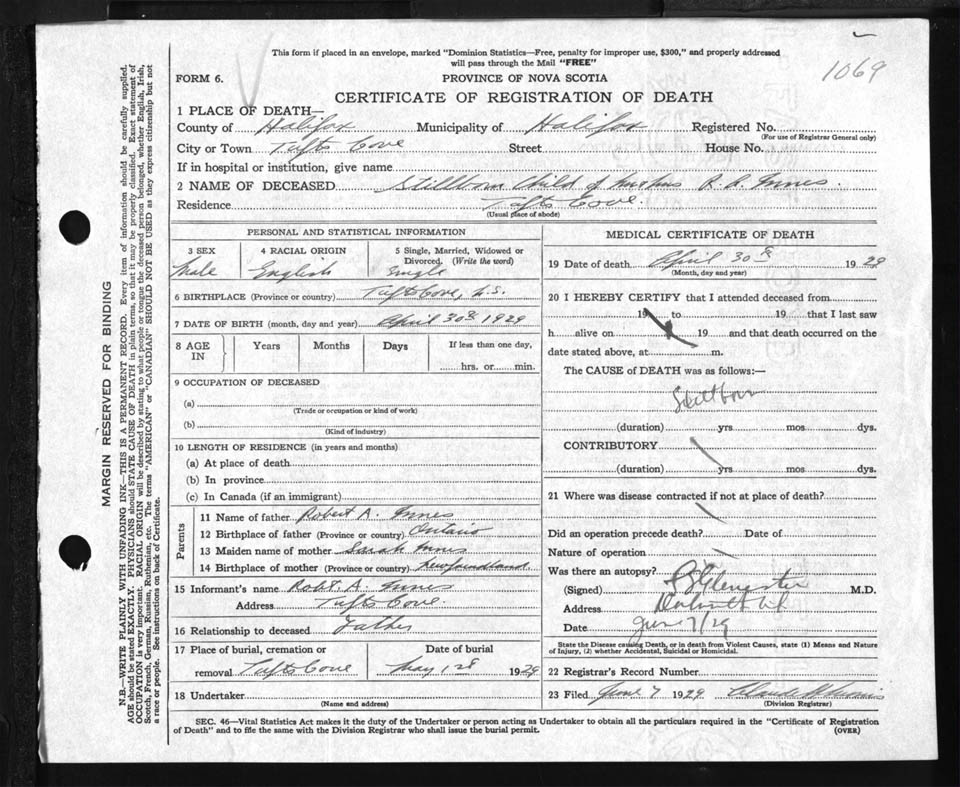 This form if placed in an envelope, marked "Dominion Statistics—Free, penalty for improper use, $300," and properly addressed
will pass through the Mail "FREE"
1069
FORM 6.
PROVINCE OF NOVA SCOTIA
CERTIFICATE OF REGISTRATION OF DEATH
1 PLACE OF DEATH—
County of Halifax Municipality of Halifax Registered No.
(For use of Registrar General only)
City or Town Tufts Cove Street House No.
If in hospital or institution, give name
2 NAME OF DECEASED Stillborn Child of R. A. Innes.
Residence Tufts Cove.
(Usual place of abode)
PERSONAL AND STATISTICAL INFORMATION
3 SEX 4 RACIAL ORIGIN 5 Single, Married, Widowed or
Divorced. (Write the word)
Male English Single
6 BIRTHPLACE (Province or country) Tufts Cove, N.S.
7 DATE OF BIRTH (month, day and year) April 30th 1929
8 AGE IN Years Months Days If less than one day,
hrs. or min.
9 OCCUPATION OF DECEASED
(a)
(Trade or occupation or kind of work)
(b)
(Kind of industry)
10 LENGTH OF RESIDENCE (in years and months)
(a) At place of death
(b) In province
(c) In Canada (if an immigrant)
Parents
11 Name of father Robert A. Innes
12 Birthplace of father (Province or country) Ontario
13 Maiden name of mother Sarah Innes
14 Birthplace of mother (Province or country) Newfoundland
15 Informant's name Robt. A. Innes
Address Tufts Cove.
16 Relationship to deceased Father
17 Place of burial, cremation or Date of burial
removal Tufts Cove May 1st 1929
18 Undertaker
(Name and address)
MEDICAL CERTIFICATE OF DEATH
19 Date of death April 30th 1929
(Month, day and year)
20 I HEREBY CERTIFY that I attended deceased from
19 to 19 that I last saw
h alive on 19 and that death occurred on the
date stated above, at m.
The CAUSE of DEATH was as follows:—
Stillborn
(duration) yrs mos dys.
CONTRIBUTORY
(duration) yrs mos dys.
21 Where was disease contracted if not at place of death?
Did an operation precede death? Date of
Nature of operation
Was there an autopsy?
(Signed) M.D.
Address
Date June 7/29
State the Disease causing Death, or in death from Violent Causes, state (1) Means and Nature
of Injury, (2) whether Accidental, Suicidal or Homicidal.
22 Registrar's Record Number
23 Filed June 7 1929
(Division Registrar)
SEC. 46—Vital Statistics Act makes it the duty of the Undertaker or person acting as Undertaker to obtain all the particulars required in the "Certificate of Registration
of Death" and to file the same with the Division Registrar who shall issue the burial permit.
(OVER)
MARGIN RESERVED FOR BINDING
N.B.—WRITE PLAINLY WITH UNFADING INK—THIS IS A PERMANENT RECORD. Every item of information should be carefully supplied.
AGE should be stated EXACTLY. PHYSICIANS should STATE CAUSE OF DEATH in plain terms, so that it may be properly classified. Exact statement of
OCCUPATION is very important. RACIAL ORIGIN will be described by stating to what people or tongue the deceased person belonged, whether English, Irish,
Scotch, French, German, Russian, Ruthenian, etc. The terms "AMERICAN" or "CANADIAN" SHOULD NOT BE USED as they express citizenship but not
a race or people. See instructions on back of Certificate.